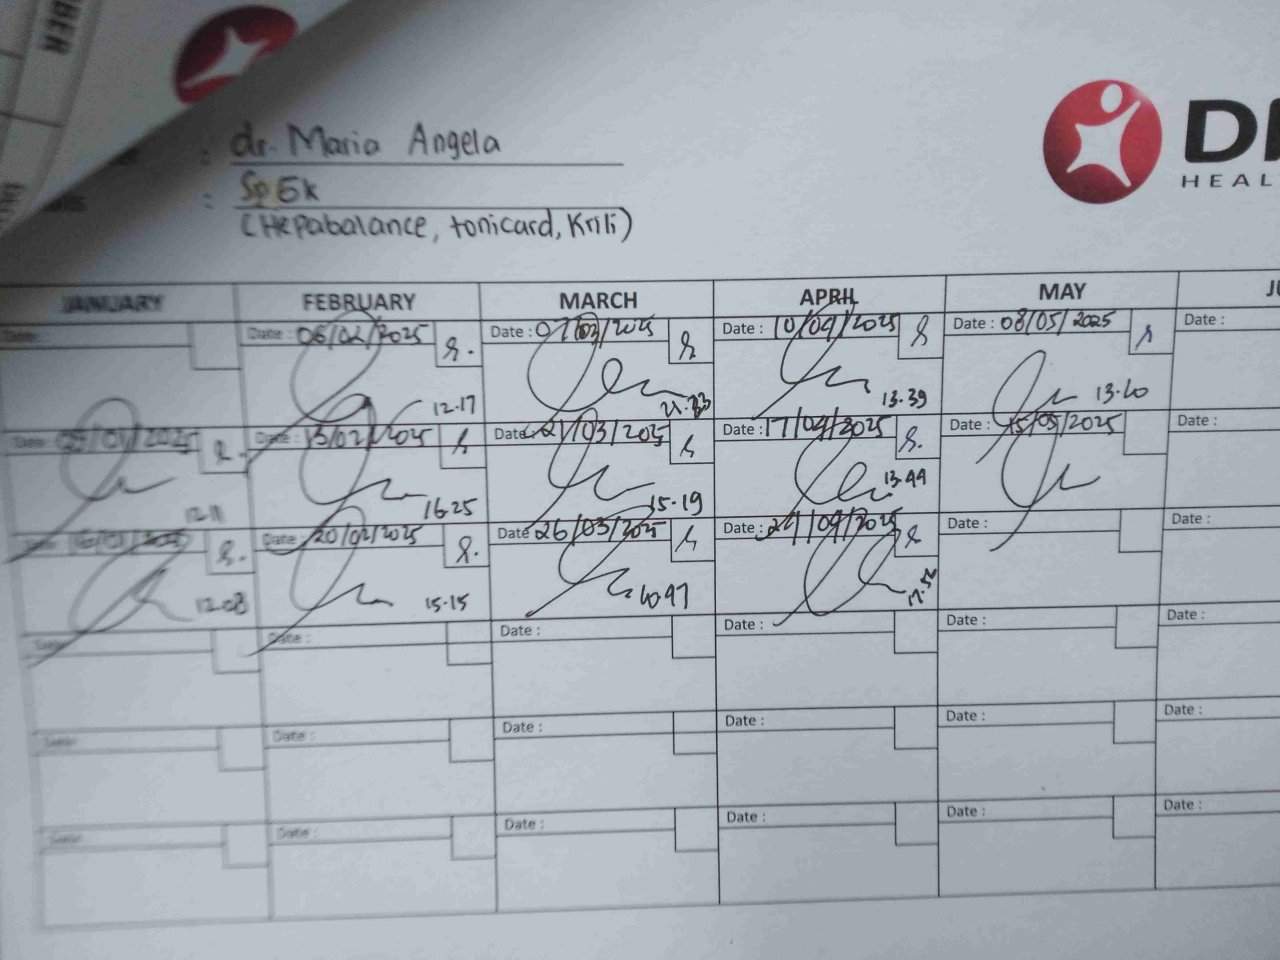 BER
: dr. Maria Angela
: Sp Ek
(Hepabalance, tonicard, Krili)
HEAL
JANUARY FEBRUARY MARCH APRIL MAY
Date : Date : 06/02/2025 Date : 07/03/2025 Date : 10/04/2025 Date : 08/05/2025 Date :
12.17 13.39
Date : Date : 13/02/2025 Date : 21/03/2025 Date : 17/04/2025 Date : 15/05/2025 Date :
12.11 16.25 15.19 13.44
Date : Date : 20/02/2025 Date 26/03/2025 Date : 24/04/2025 Date : Date :
12.08 15.15
Date : Date : Date : Date : Date : Date :
Date : Date : Date : Date : Date : Date :
Date : Date : Date : Date : Date : Date :